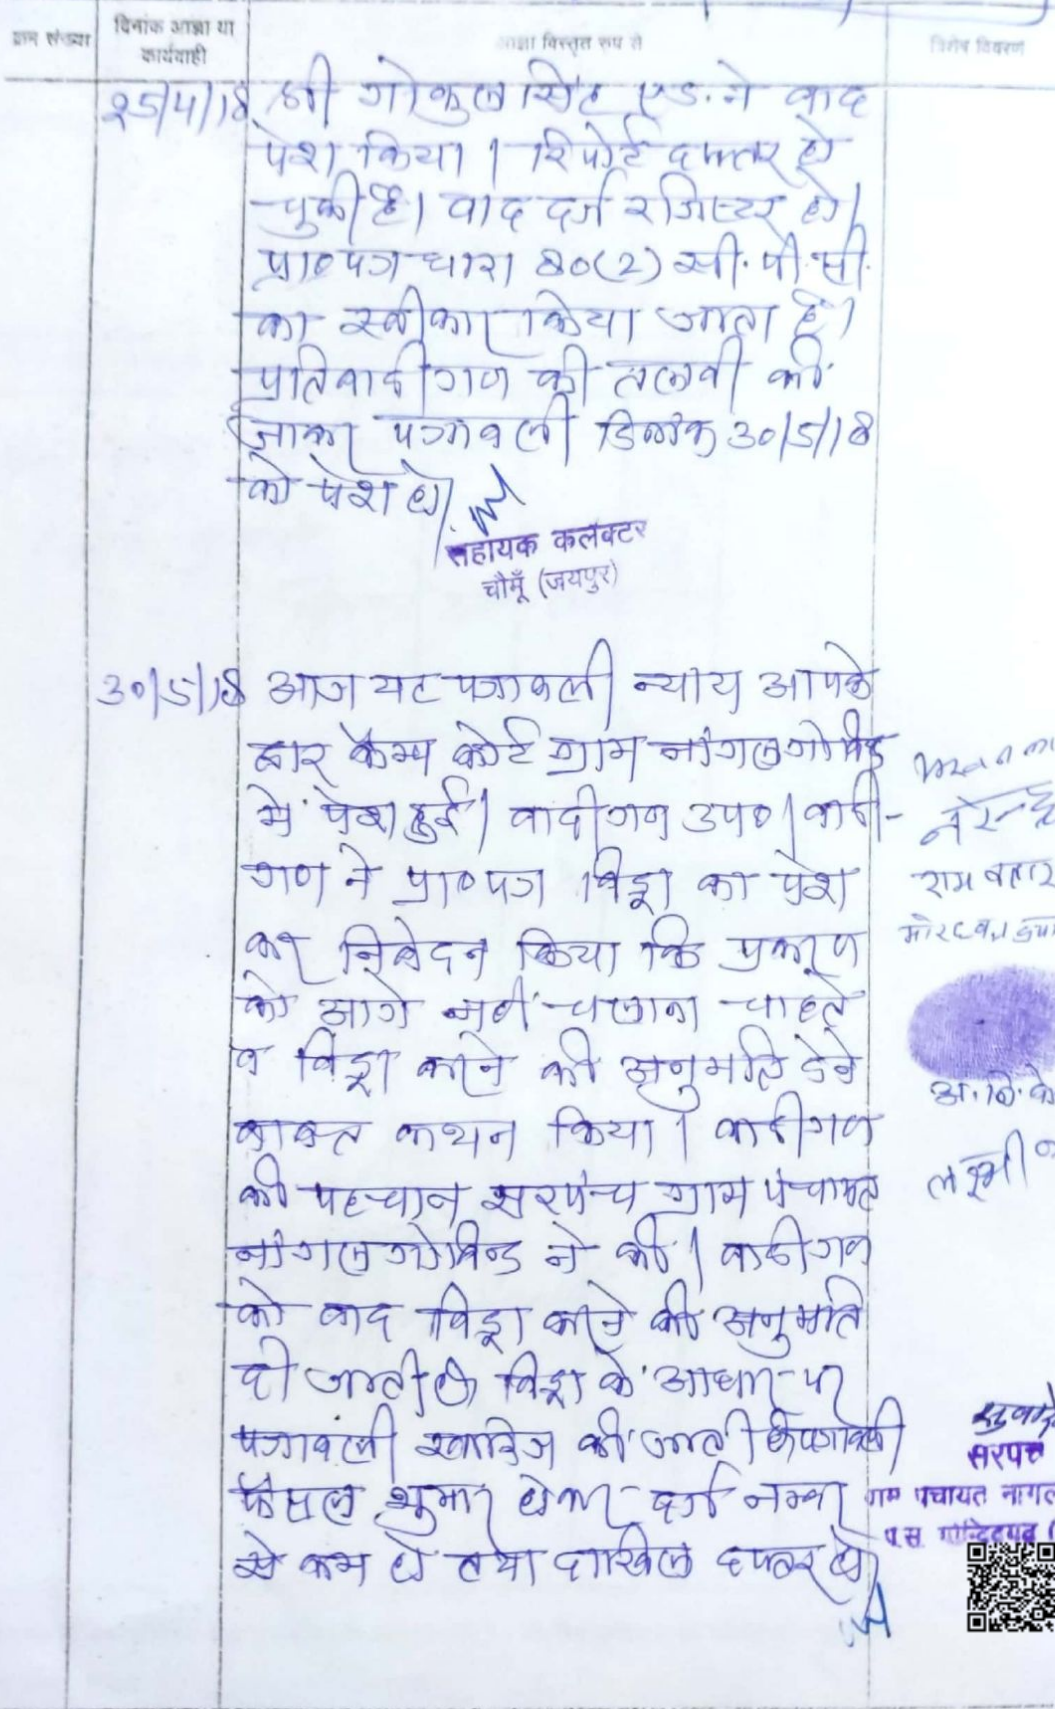 क्रम संख्या
दिनांक आज्ञा या
कार्यवाही
आज्ञा विस्तृत रूप से
विशेष विवरण
25/4/18 श्री गोकुल सिंह एड. ने वाद
पेश किया। रिपोर्ट दफ्तर हो
चुकी है। वाद दर्ज रजिस्टर हो।
प्रा०पत्र धारा 80(2) सी.पी.सी.
का स्वीकार किया जाता है।
प्रतिवादीगण की तलबी की
जाकर पत्रावली दिनांक 30/5/18
को पेश हो।
सहायक कलक्टर
चौमूँ (जयपुर)
30/5/18 आज यह पत्रावली न्याय आपके
द्वार कैम्प कोर्ट ग्राम नांगलगोविन्द
में पेश हुई। वादीगण उप०। वादी-
नरेन्द्र
गण ने प्रा०पत्र विड्रा का पेश
राम
कर निवेदन किया कि प्रकरण
को आगे नहीं चलाना चाहते
व विड्रा करने की अनुमति देने
बाबत कथन किया। वादीगण
की पहचान सरपंच ग्राम पंचायत
लक्ष्मी
नांगलगोविन्द ने की। वादीगण
को वाद विड्रा करने की अनुमति
दी जाती है। विड्रा के आधार पर
पत्रावली खारिज की जाती है। पत्रावली
सरपंच
फैसल शुमार होकर दर्ज नम्बर
ग्राम पंचायत नांगल
से कम हो तथा दाखिल दफ्तर हो।